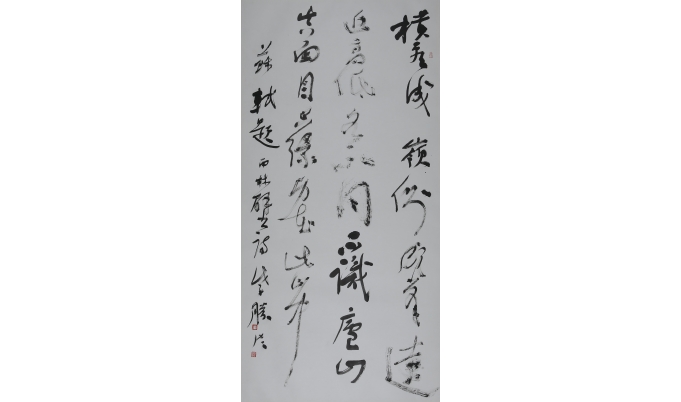 橫看成嶺側成峯遠
近高低各不同不識廬山
真面目只緣身在此山中
蘇軾題西林壁書詩